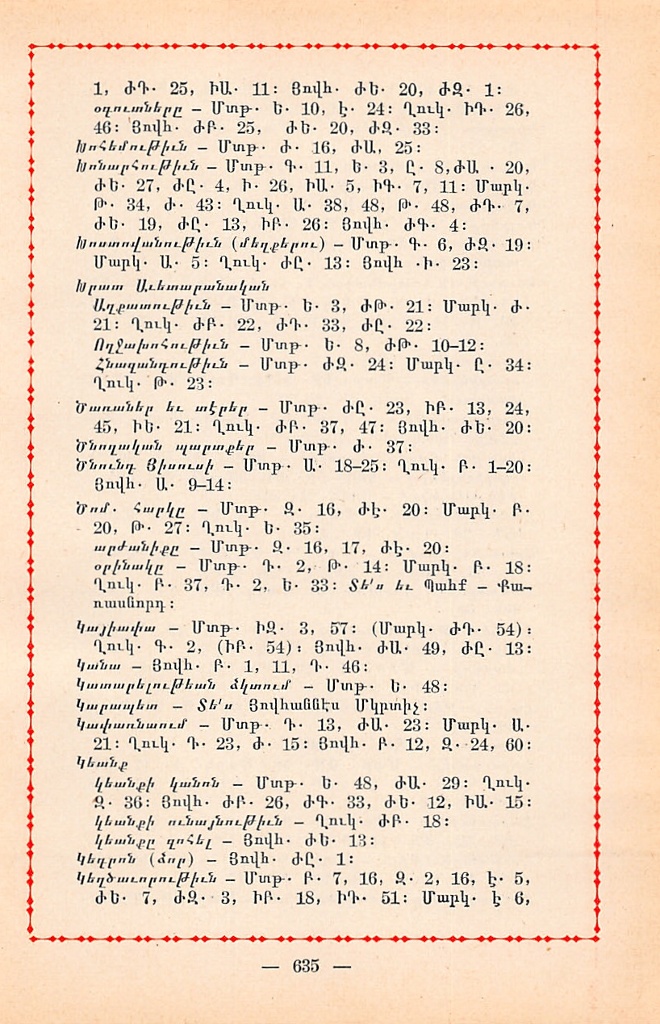 1, ԺԴ. 25, ԻԱ. 11: Յովհ. ԺԵ. 20, ԺԶ. 1:
օգուտները – Մտթ. Ե. 10, Է. 24: Ղուկ. ԻԴ. 26,
46: Յովհ. ԺԲ. 25, ԺԵ. 20, ԺԶ. 33:
Խոհեմութիւն – Մտթ. Ժ. 16, ԺԱ, 25:
Խոնարհութիւն – Մտթ. Գ. 11, Ե. 3, Ը. 8, ԺԱ . 20,
ԺԵ. 27, ԺԸ. 4, Ի. 26, ԻԱ. 5, ԻԳ. 7, 11: Մարկ.
Թ. 34, Ժ. 43: Ղուկ. Ա. 38, 48, Թ. 48, ԺԴ. 7,
ԺԵ. 19, ԺԸ. 13, ԻԲ. 26: Յովհ. ԺԳ. 4:
Խոստովանութիւն (մեղքերու) – Մտթ. Գ. 6, ԺԶ. 19:
Մարկ. Ա. 5: Ղուկ. ԺԸ. 13: Յովհ .Ի. 23:
Խրատ Աւետարանական
Աղքատութիւն – Մտթ. Ե. 3, ԺԹ. 21: Մարկ. Ժ.
21: Ղուկ. ԺԲ. 22, ԺԴ. 33, ԺԸ. 22:
Ողջախոհութիւն – Մտթ. Ե. 8, ԺԹ. 10–12:
Հնազանդութիւն – Մտթ. ԺԶ. 24: Մարկ. Ը. 34:
Ղուկ. Թ. 23:
Ծառաներ եւ տէրեր – Մտթ. ԺԸ. 23, ԻԲ. 13, 24,
45, ԻԵ. 21: Ղուկ. ԺԲ. 37, 47: Յովհ. ԺԵ. 20:
Ծնողական պարտքեր – Մտթ. Ժ. 37:
Ծնունդ Յիսուսի – Մտթ. Ա. 18–25: Ղուկ. Բ. 1–20:
Յովհ. Ա. 9–14:
Ծոմ. հարկը – Մտթ. Զ. 16, ԺԷ. 20: Մարկ. Բ.
20, Թ. 27: Ղուկ. Ե. 35:
արժանիքը – Մտթ. Զ. 16, 17, ԺԷ. 20:
օրինակը – Մտթ. Դ. 2, Թ. 14: Մարկ. Բ. 18:
Ղուկ. Բ. 37, Դ. 2, Ե. 33: Տե՛ս եւ Պահք – Քա–
ռասնորդ:
Կայիափա – Մտթ. ԻԶ. 3, 57: (Մարկ. ԺԴ. 54):
Ղուկ. Գ. 2, (ԻԲ. 54): Յովհ. ԺԱ. 49, ԺԸ. 13:
Կանա – Յովհ. Բ. 1, 11, Դ. 46:
Կատարելութեան ձկտում – Մտթ. Ե. 48:
Կարապետ – Տե՛ս Յովհաննէս Մկրտիչ:
Կափառնաում – Մտթ. Դ. 13, ԺԱ. 23: Մարկ. Ա.
21: Ղուկ. Դ. 23, Ժ. 15: Յովհ. Բ. 12, Զ. 24, 60:
Կեանք
կեանքի կանոն – Մտթ. Ե. 48, ԺԱ. 29: Ղուկ.
Զ. 36: Յովհ. ԺԲ. 26, ԺԳ. 33, ԺԵ. 12, ԻԱ. 15:
կեանքի ունայնութիւն – Ղուկ. ԺԲ. 18:
կեանքը զոհել – Յովհ. ԺԵ. 13:
Կեդրոն (ձոր) – Յովհ. ԺԸ. 1:
Կեղծաւորութիւն – Մտթ. Բ. 7, 16, Զ. 2, 16, Է. 5,
ԺԵ. 7, ԺԶ. 3, ԻԲ. 18, ԻԴ. 51: Մարկ. Է 6,
— 635 —